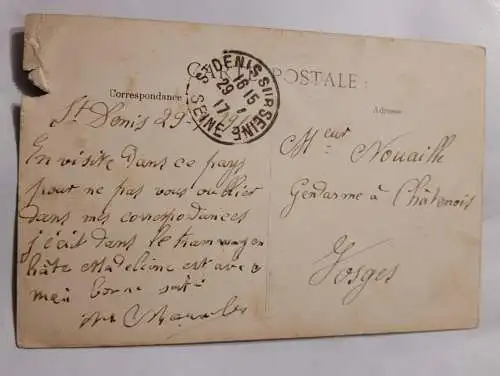 CARTE POSTALE
Correspondance
Adresse
ST DENIS-SUR-SEINE
16 15
29
17
SEINE
St Denis 29-
En visite dans ce pays
pour ne pas vous oublier
dans mes correspondances
j'écit dans le tramwagen
hâte Madeleine est avec
moi bonne santé
Mr Nouaille
Gendarme à Châtenois
Vosges